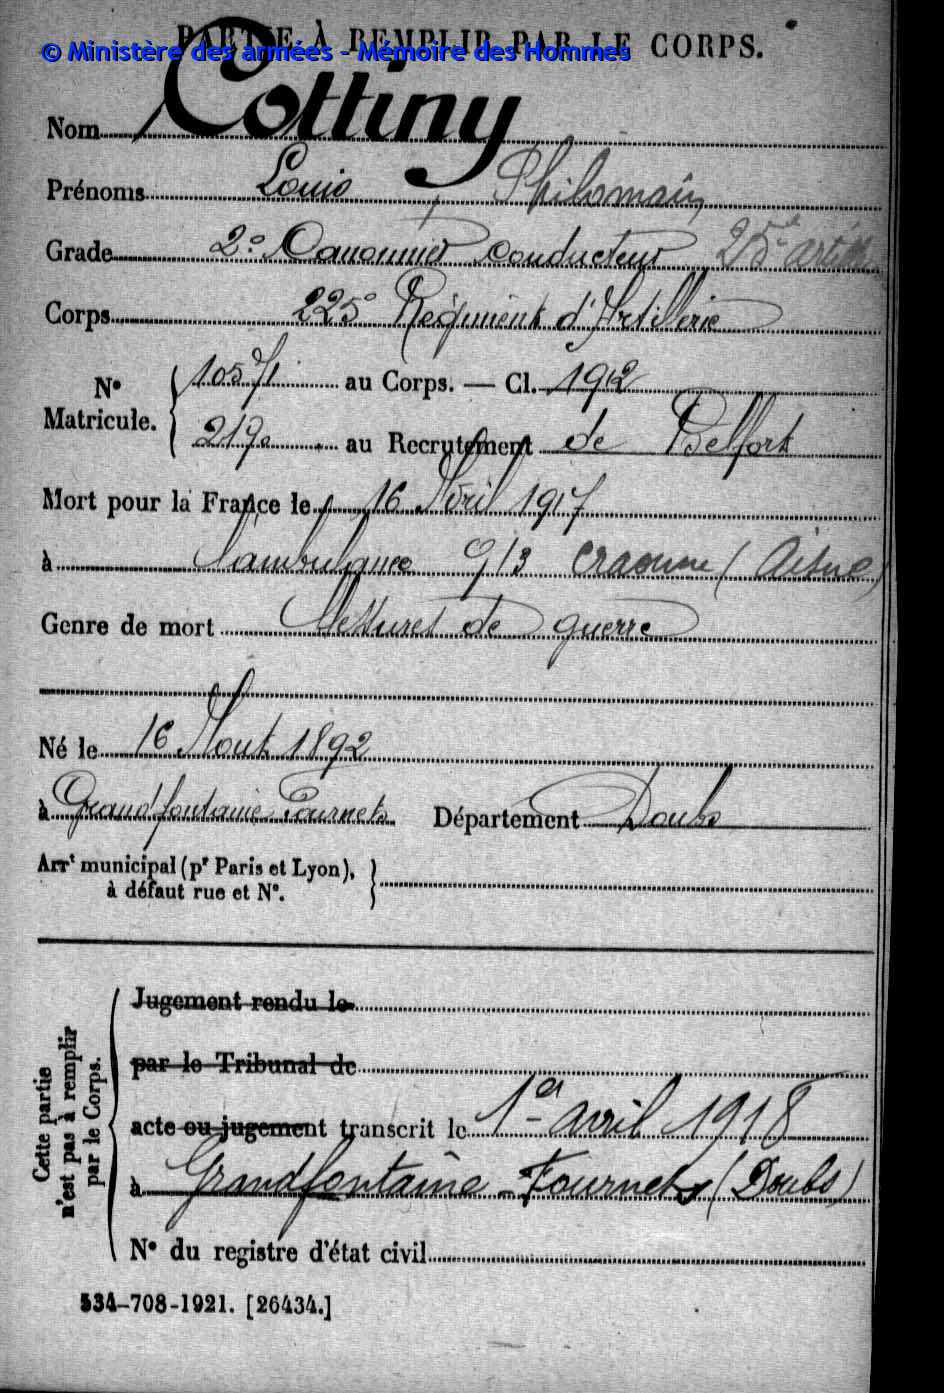 PARTIE À REMPLIR PAR LE CORPS.
© Ministère des armées - Mémoire des Hommes
Nom Cottiny
Prénoms Louis Philomain
Grade 2e Canonnier conducteur 25e artie
Corps 225e Régiment d'Artillerie
N° Matricule. 10571 au Corps. — Cl. 1912
2190 au Recrutement de Belfort
Mort pour la France le 16 Avril 1917
à l'ambulance 9/3 Craonne (Aisne)
Genre de mort blessures de guerre
Né le 16 Aout 1892
à Grandfontaine Fournets Département Doubs
Arrt municipal (pr Paris et Lyon),
à défaut rue et N°.
Cette partie
n'est pas à remplir
par le Corps.
Jugement rendu le
par le Tribunal de
acte ou jugement transcrit le 1er avril 1918
à Grandfontaine-Fournets (Doubs)
N° du registre d'état civil
534-708-1921. [26434.]